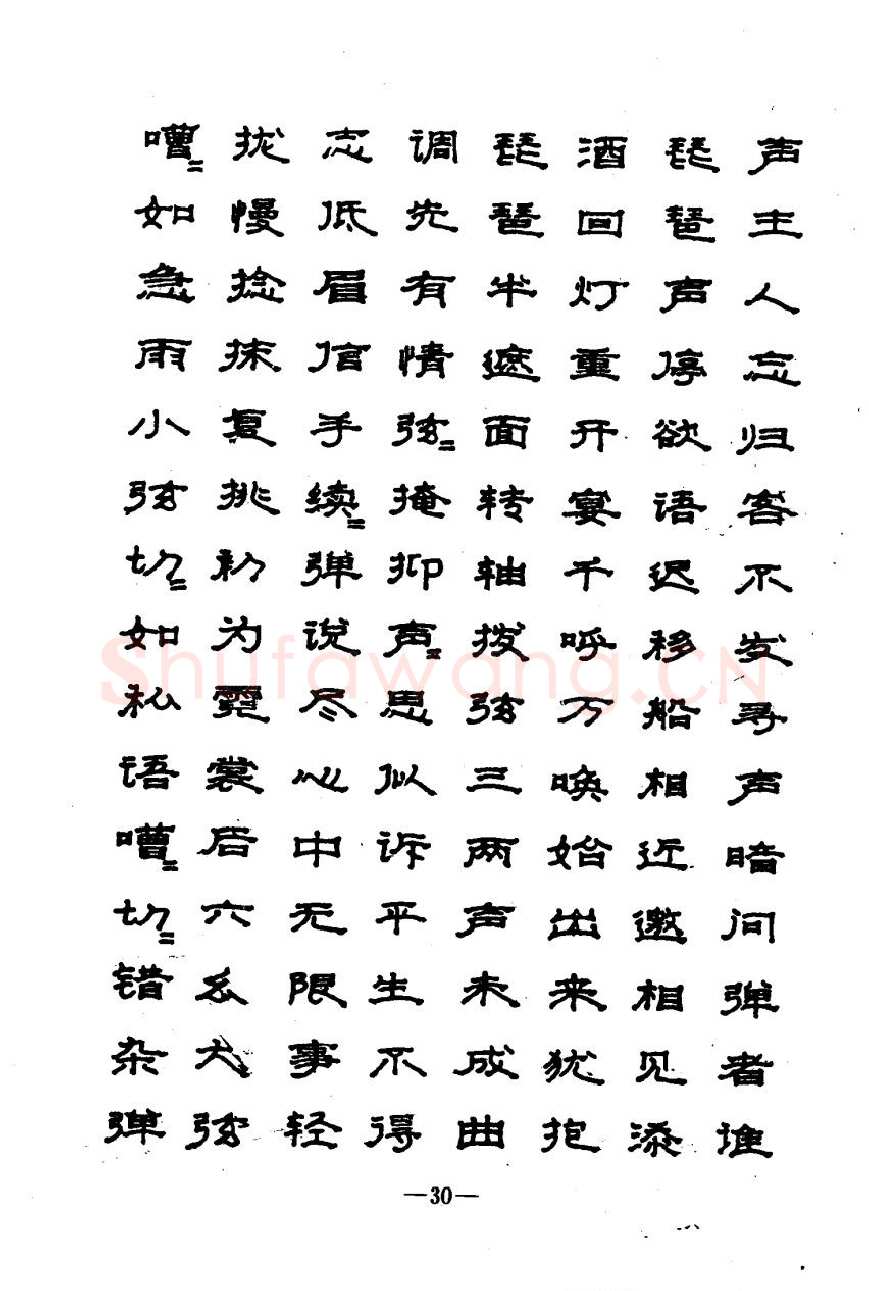 声主人忘归客不发寻声暗问弹者谁
琵琶声停欲语迟移船相近邀相见添
酒回灯重开宴千呼万唤始出来犹抱
琵琶半遮面转轴拨弦三两声未成曲
调先有情弦=掩抑声=思似诉平生不得
志低眉信手续=弹说尽心中无限事轻
拢慢捻抹复挑初为霓裳后六幺大弦
嘈=如急雨小弦切=如私语嘈=切=错杂弹
—30—
Shufawang.CN